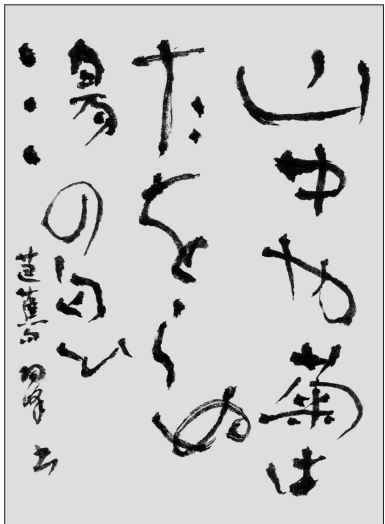 山中や菊は
たをらぬ
湯の匂ひ
芭蕉句 書